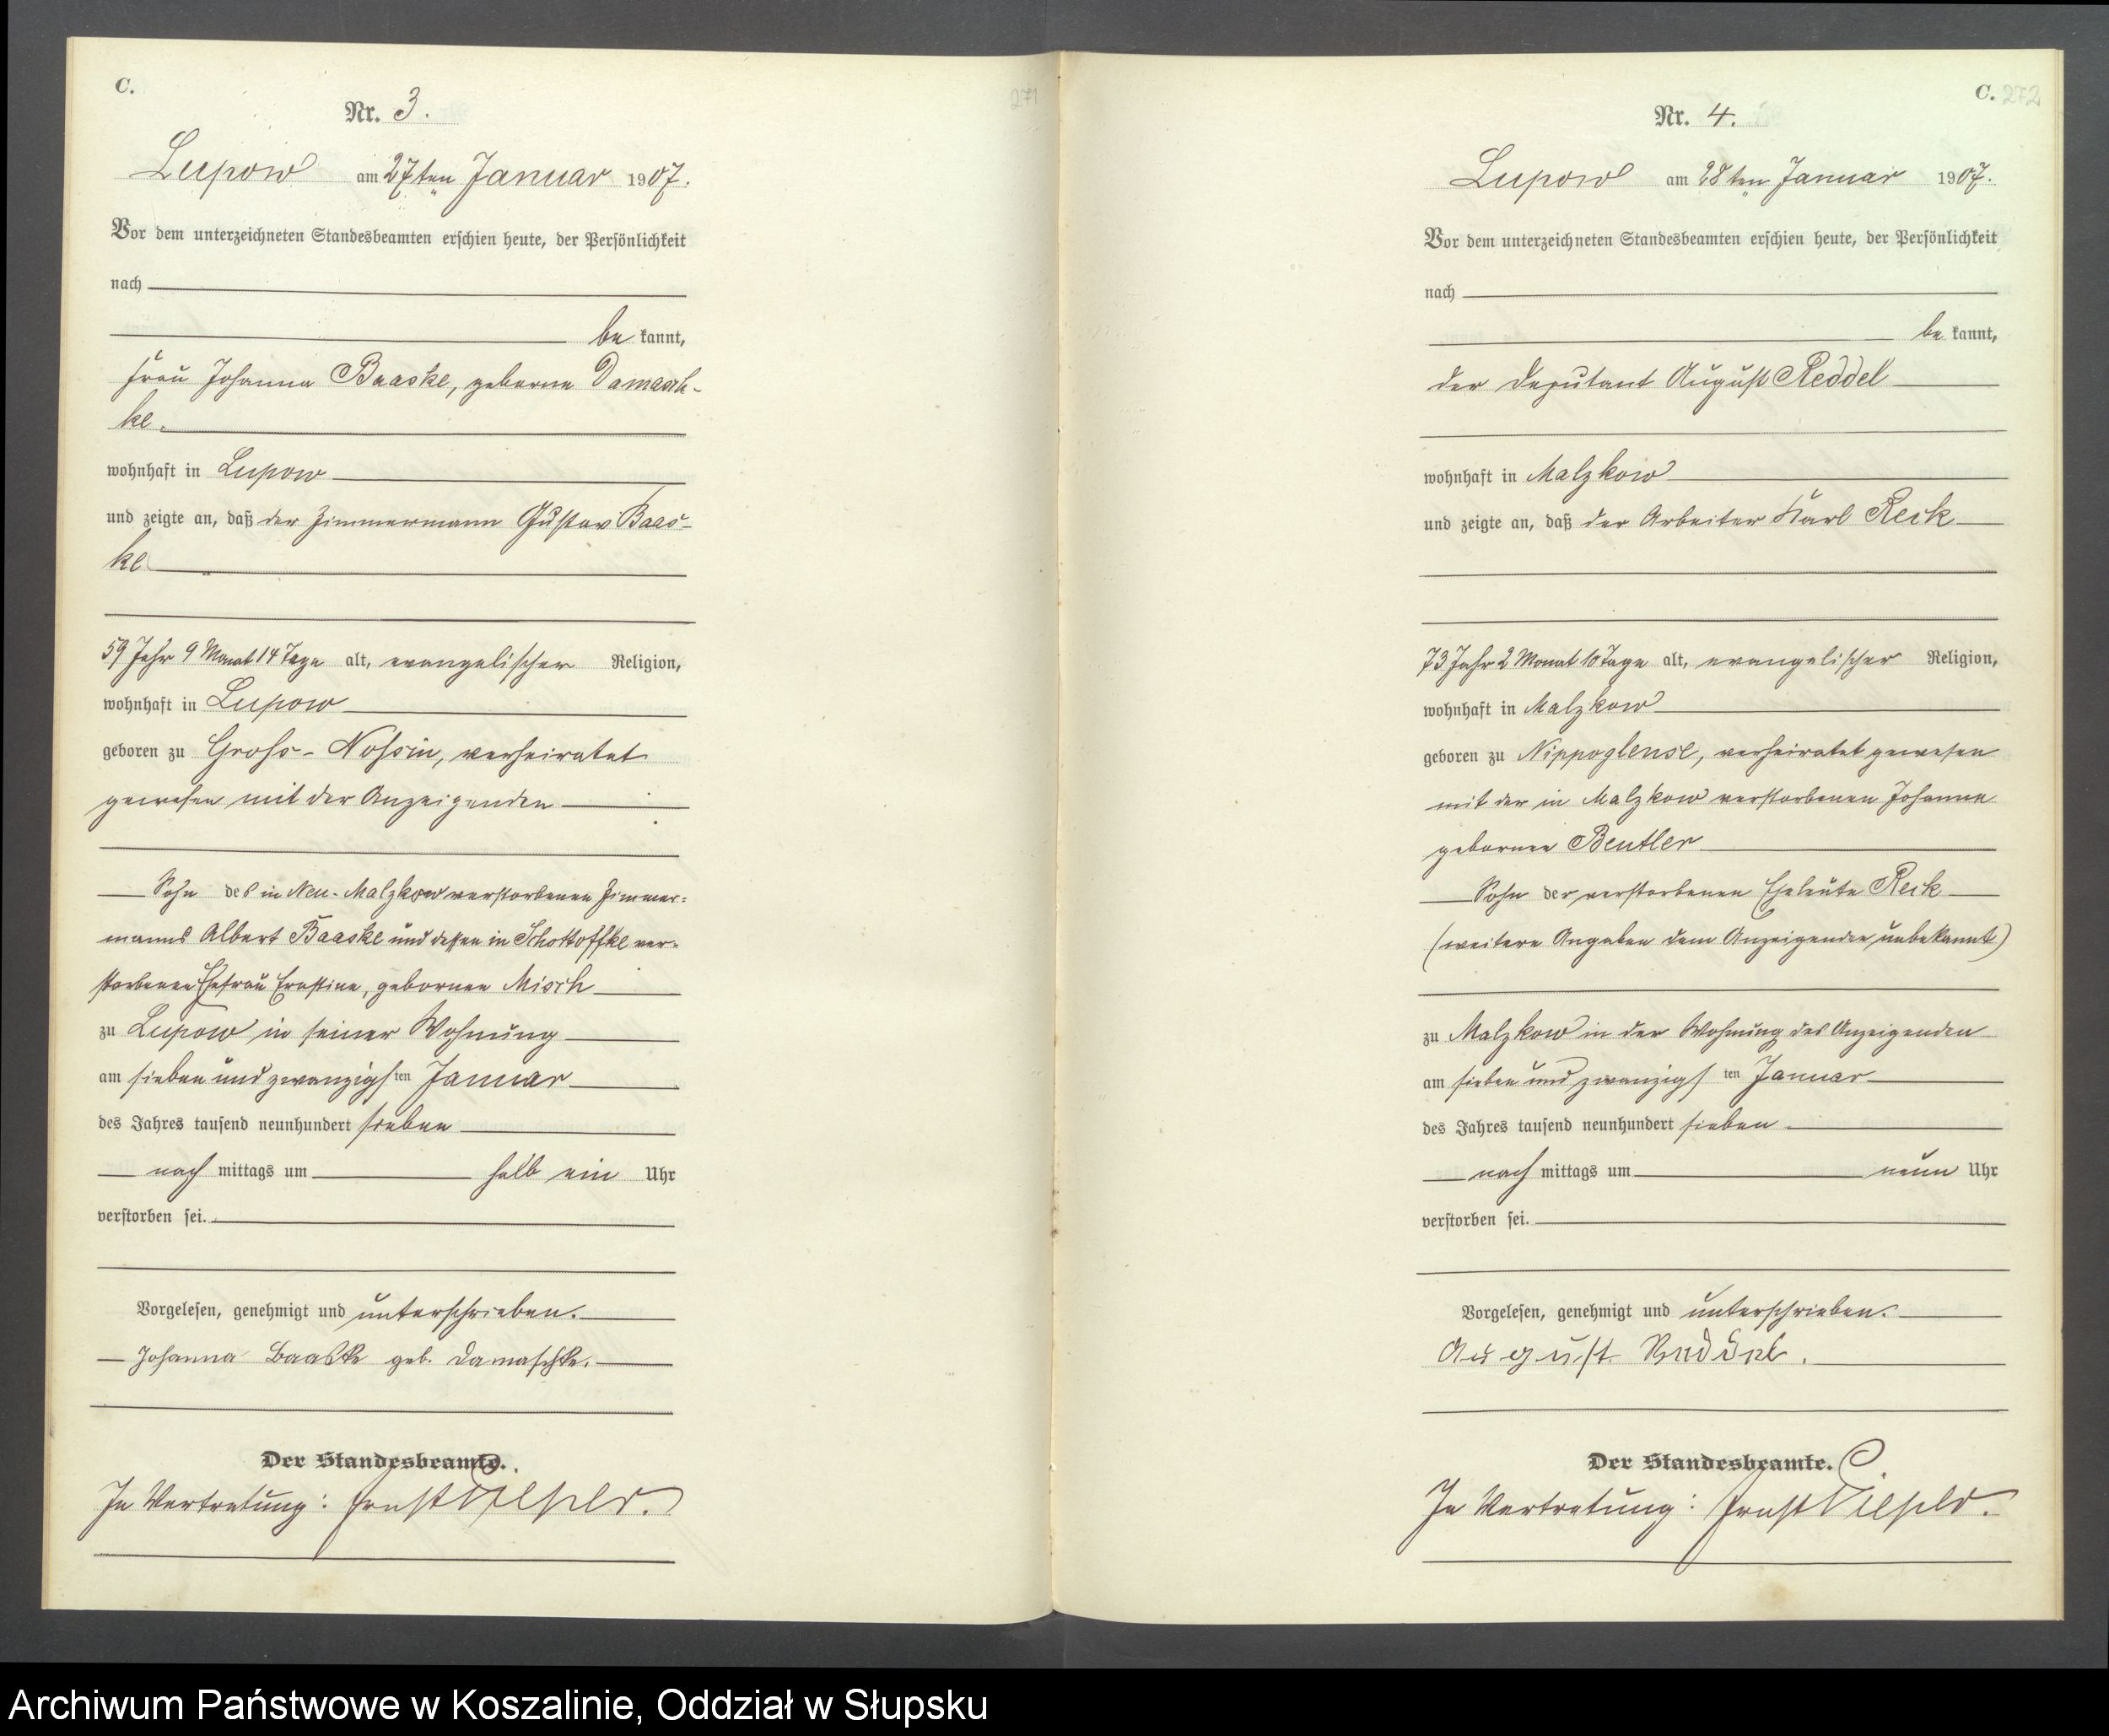 C.
271
Nr. 3.
Lupow am 27ten Januar 1907.
Vor dem unterzeichneten Standesbeamten erschien heute, der Persönlichkeit
nach
be kannt,
Frau Johanna Baaske, geborne Damasch-
ke.
wohnhaft in Lupow
und zeigte an, daß der Zimmermann Gustav Baas-
ke
59 Jahr 9 Monat 14 Tage alt, evangelischer Religion,
wohnhaft in Lupow
geboren zu Groß-Nossin, verheiratet
gewesen mit der Anzeigenden
Sohn des in Neu-Malzkow verstorbenen Zimmer-
manns Albert Baaske und dessen in Schottoffke ver-
storbenen Ehefrau Ernstine, gebornen Misch
zu Lupow in seiner Wohnung
am sieben und zwanzigsten Januar
des Jahres tausend neunhundert sieben
nach mittags um halb ein Uhr
verstorben sei.
Vorgelesen, genehmigt und unterschrieben.
Johanna Baaske geb. Damaschke.
Der Standesbeamte.
In Vertretung: Ernst
C. 272
Nr. 4.
Lupow am 28ten Januar 1907.
Vor dem unterzeichneten Standesbeamten erschien heute, der Persönlichkeit
nach
be kannt,
der Deputant August Reddel
wohnhaft in Malzkow
und zeigte an, daß der Arbeiter Karl Reck
73 Jahr 2 Monat 10 Tage alt, evangelischer Religion,
wohnhaft in Malzkow
geboren zu Nippoglense, verheiratet gewesen
mit der in Malzkow verstorbenen Johanna
gebornen Beutler
Sohn der verstorbenen Eheleute Reck
(weitere Angaben dem Anzeigenden unbekannt)
zu Malzkow in der Wohnung des Anzeigenden
am sieben und zwanzigsten Januar
des Jahres tausend neunhundert sieben
nach mittags um neun Uhr
verstorben sei.
Vorgelesen, genehmigt und unterschrieben.
August Reddel.
Der Standesbeamte.
In Vertretung: Ernst
Archiwum Państwowe w Koszalinie, Oddział w Słupsku